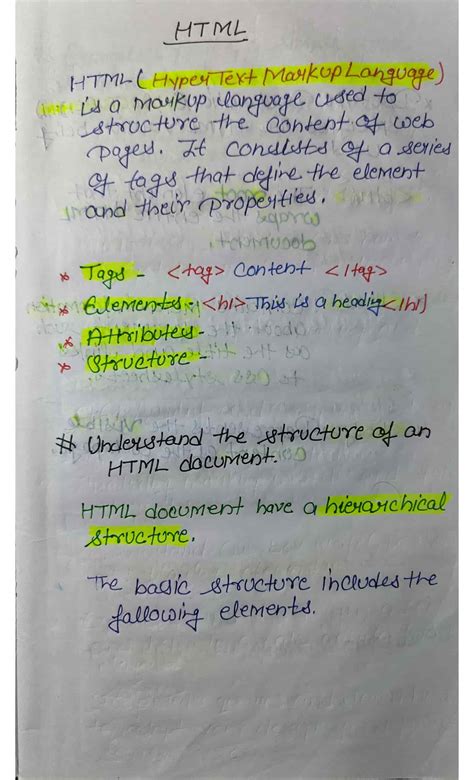 HTML
HTML (HyperText Markup Language)
is a markup language used to
structure the content of web
pages. It consists of a series
of tags that define the element
and their properties.
* Tags - <tag> Content </tag>
* Elements - <h1> This is a heading </h1)
* Attributes -
* Structure -
# Understand the structure of an
HTML document.
HTML document have a hierarchical
structure.
The basic structure includes the
following elements.